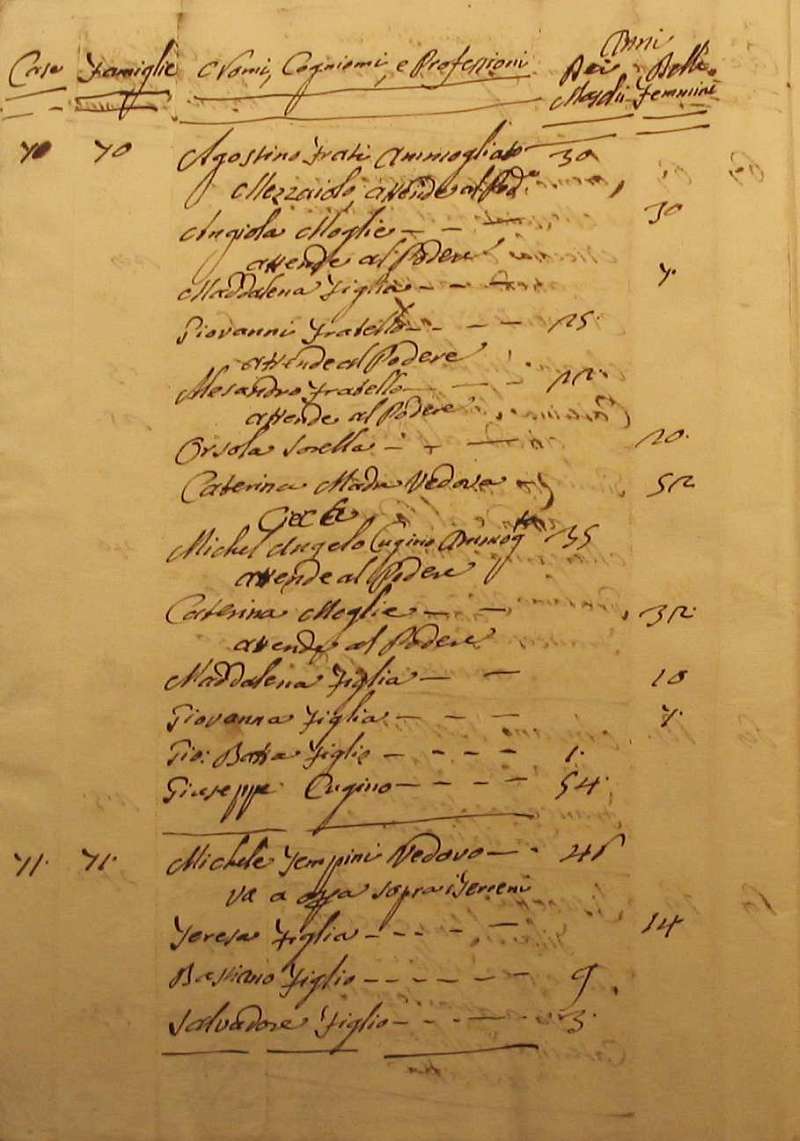 Anni
Case Famiglie Nomi, Cogniomi, e Professioni Dei Delle
Maschi Femmine
70 70 Agostino Frati Ammogliato 30
Mezzaiolo, attende al Pod.e
Angiola Moglie 30
attende al Podere
Maddalena Figlia 7.
Giovanni Fratello 25.
attende al Podere
Alesandro Fratello 22.
attende al Podere
Orsola Sorella 20.
Caterina Madre Vedova 52
Michel Angelo Cugino Ammog.to 35
attende al Podere
Caterina Moglie 32.
attende al Podere
Maddalena Figlia 10
Giovanna Figlia 7.
Gio: Batta Figlio 1.
Giuseppe Cugino 54.
71. 71. Michele Tempini Vedovo 45
va a opra sopra i Terreni
Teresa Figlia 14
Bastiano Figlio 9
Salvadore Figlio 3.